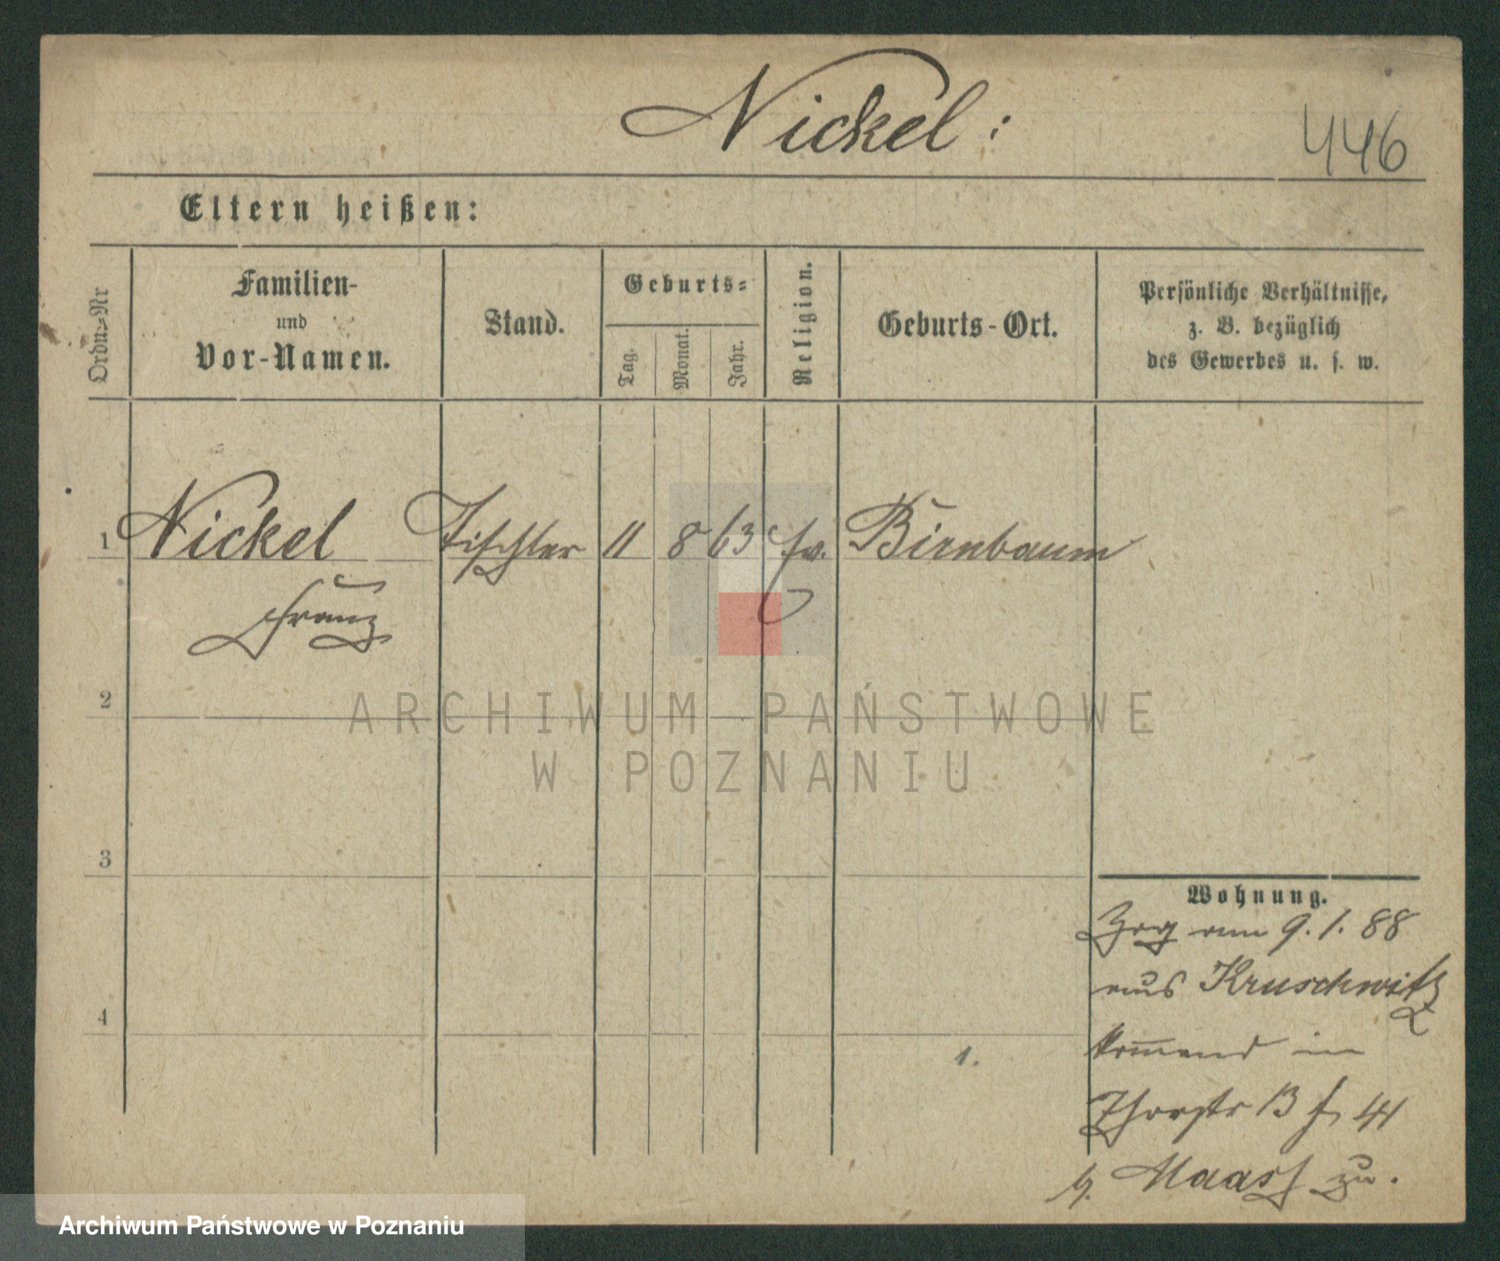 Nickel:
446
Eltern heißen:
Ordn.-Nr
Familien-
und
Vor-Namen.
Stand.
Geburts-
Tag.
Monat.
Jahr.
Religion.
Geburts-Ort.
Persönliche Verhältnisse,
z. B. bezüglich
des Gewerbes u. s. w.
1 Nickel Tischler 11 8 63 ev. Birnbaum
Franz
2
ARCHIWUM PAŃSTWOWE
W POZNANIU
3
Wohnung.
Zrg am 9. 1. 88
aus Kruschwitz
4
kommend in
1.
Thorstr 13 41
b. Maass zu.
Archiwum Państwowe w Poznaniu